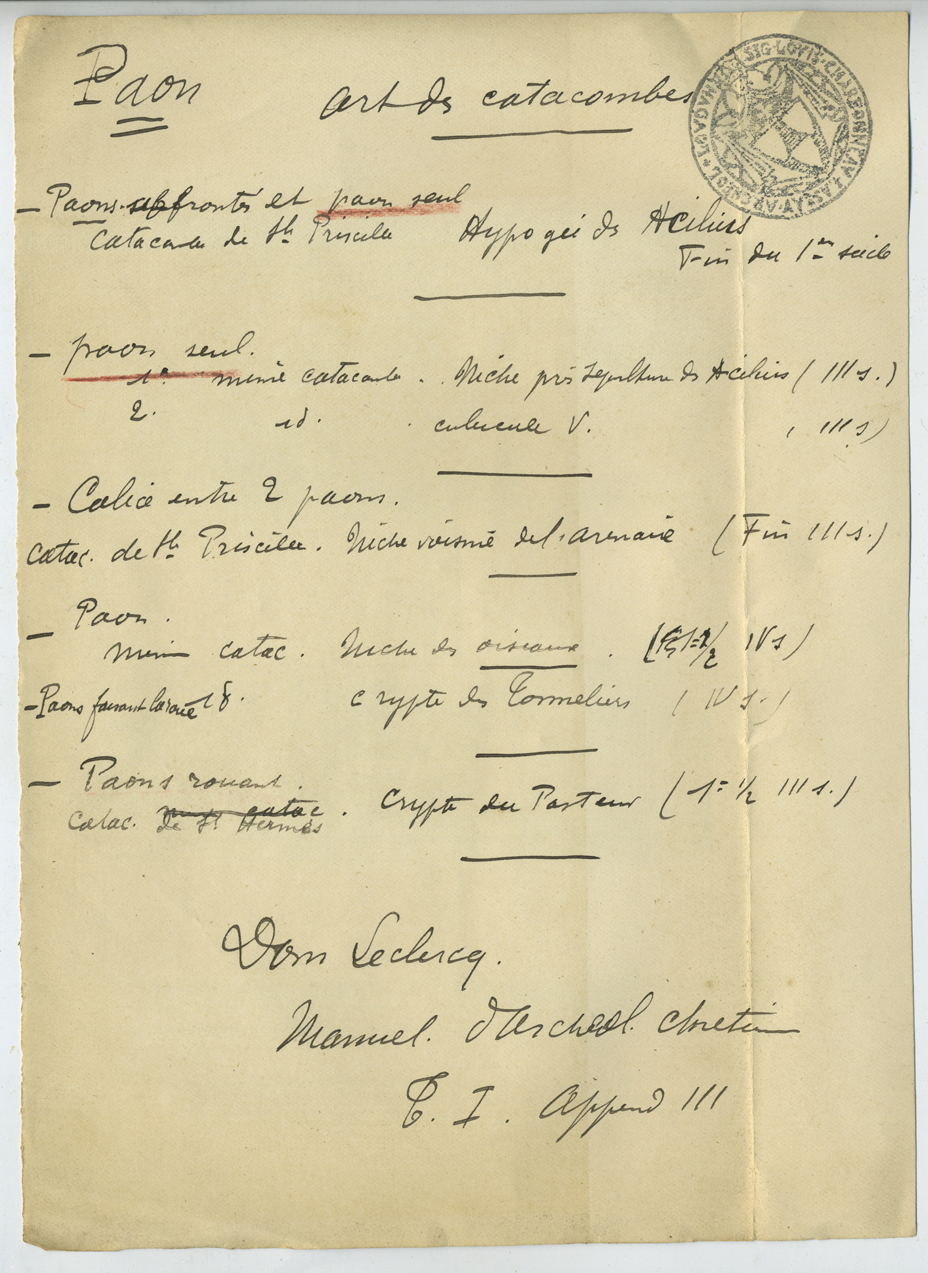 Paon
art des catacombes
SIG · LOVIS · CHARBONNEAV · LASSAY · ARCHEOL
– Paons affrontés et paon seul
Catacombe de Ste Priscille Hypogée des Acilius
Fin du 1er siècle
– paon seul.
1° même catacombe . Niche près sépulture des Acilius ( III s. )
2. id. . cubicule V. ( III s )
– Calice entre 2 paons.
catac. de Ste Priscille . Niche voisine de l'arenaire ( Fin III s. )
– Paon .
même catac . Niche des oiseaux . ( 1/2 IV s )
– Paons faisant la roue id. crypte des Tonneliers ( IV s. )
– Paons rouant .
même catac .
catac. de St Hermès crypte du Pasteur ( 1e 1/2 III s. )
Dom Leclercq.
Manuel. d'Archéol. chrétien
T. I . Append III